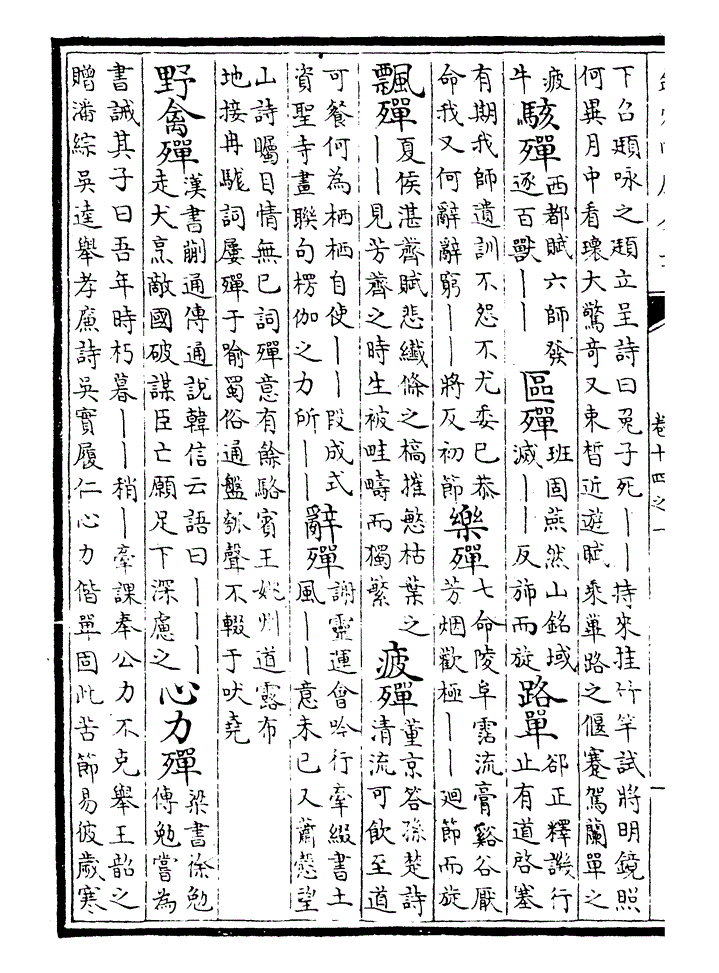 下召題咏之題立呈詩曰兎子死——持來挂竹竿試將明鏡照
何異月中看瓌大驚奇又束晳近遊賦乘蓽路之偃蹇駕蘭單之
疲牛 駭殫 西都賦六師發逐百獸—— 區殫 班固燕然山銘域滅——反斾而旋 路單 郤正釋譏行止有道啓塞
有期我師遺訓不怨不尤委巳恭命我又何辭辭窮——將反初節 樂殫 七命陵阜霑流膏谿谷厭芳烟歡極——廻節而旋
飄殫 夏侯湛薺賦悲纎條之槁摧慜枯葉之——見芳薺之時生被畦疇而獨繁 疲殫 董京答孫楚詩清流可飲至道
可餐何為栖栖自使——段成式資聖寺畫聯句楞伽之力所—— 辭殫 謝靈運會吟行牽綴書土風——意未已又蕭慤望
山詩矚目情無已詞殫意有餘駱賓王姚州道露布
地接冉駹詞屢殫于喻蜀俗通盤瓠聲不輟于吠堯
野禽殫 漢書蒯通傳通說韓信云語曰———走犬烹敵國破謀臣亡願足下深慮之 心力殫 梁書徐勉傳勉嘗為
書誡其子曰吾年時朽暮——稍—牽課奉公力不克舉王韶之
贈潘綜吳逵舉孝廉詩吳實履仁心力偕單固此苦節易彼歲寒
卷十四之一